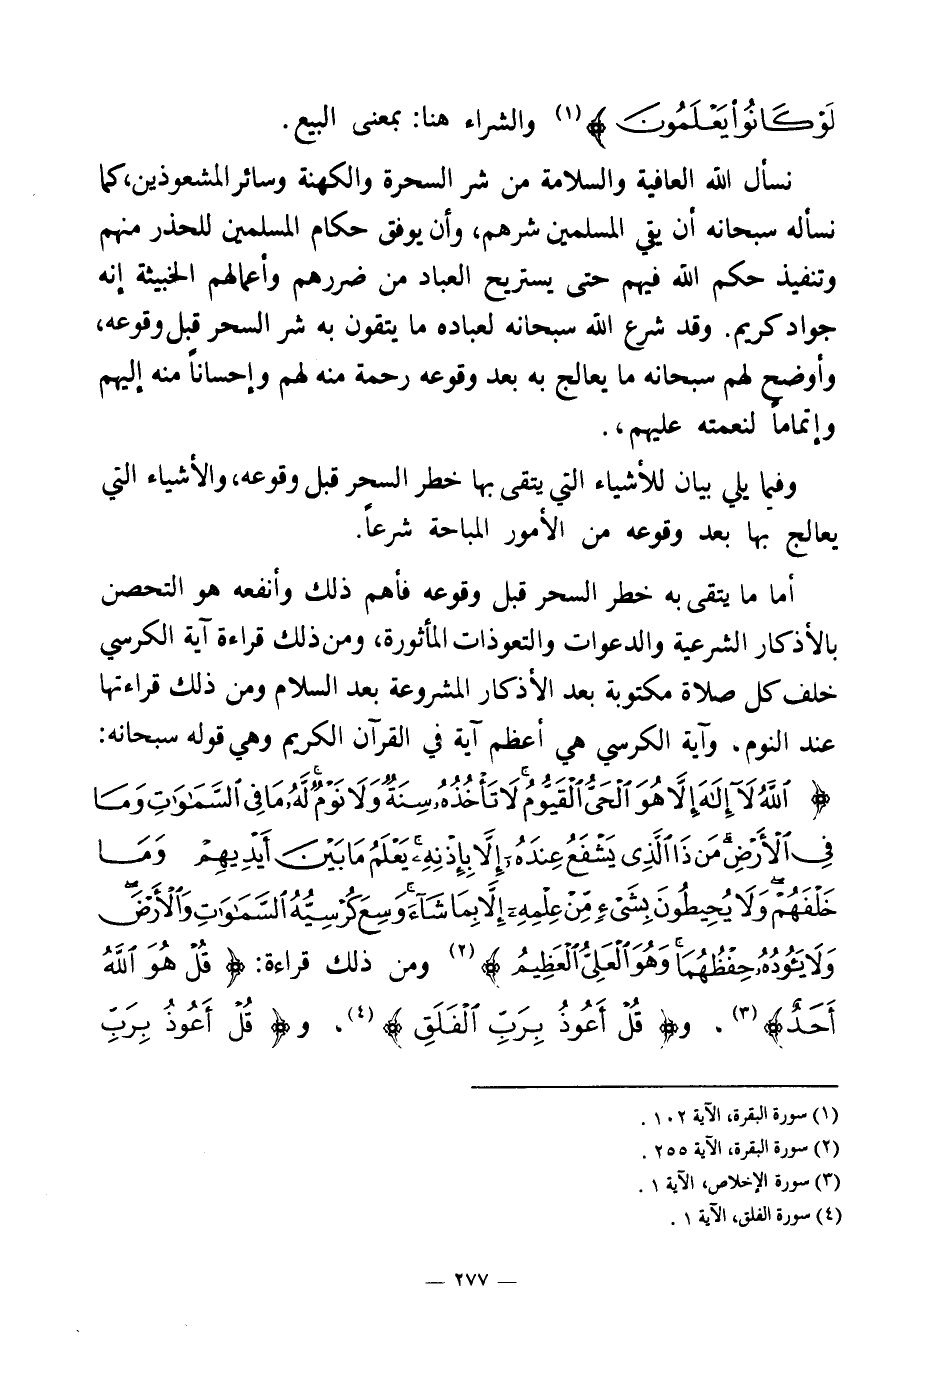 لَوْ كَانُوا۟ يَعْلَمُونَ ﴾ (١) والشراء هنا: بمعنى البيع.
نسأل الله العافية والسلامة من شر السحرة والكهنة وسائر المشعوذين، كما
نسأله سبحانه أن يقي المسلمين شرهم، وأن يوفق حكام المسلمين للحذر منهم
وتنفيذ حكم الله فيهم حتى يستريح العباد من ضررهم وأعمالهم الخبيثة إنه
جواد كريم. وقد شرع الله سبحانه لعباده ما يتقون به شر السحر قبل وقوعه،
وأوضح لهم سبحانه ما يعالج به بعد وقوعه رحمة منه لهم وإحساناً منه إليهم
وإتماماً لنعمته عليهم،.
وفيما يلي بيان للأشياء التي يتقى بها خطر السحر قبل وقوعه، والأشياء التي
يعالج بها بعد وقوعه من الأمور المباحة شرعاً.
أما ما يتقى به خطر السحر قبل وقوعه فأهم ذلك وأنفعه هو التحصن
بالأذكار الشرعية والدعوات والتعوذات المأثورة، ومن ذلك قراءة آية الكرسي
خلف كل صلاة مكتوبة بعد الأذكار المشروعة بعد السلام ومن ذلك قراءتها
عند النوم. وآية الكرسي هي أعظم آية في القرآن الكريم وهي قوله سبحانه:
﴿ ٱللَّهُ لَآ إِلَٰهَ إِلَّا هُوَ ٱلْحَىُّ ٱلْقَيُّومُ ۚ لَا تَأْخُذُهُۥ سِنَةٌ وَلَا نَوْمٌ ۚ لَّهُۥ مَا فِى ٱلسَّمَٰوَٰتِ وَمَا
فِى ٱلْأَرْضِ ۗ مَن ذَا ٱلَّذِى يَشْفَعُ عِندَهُۥٓ إِلَّا بِإِذْنِهِۦ ۚ يَعْلَمُ مَا بَيْنَ أَيْدِيهِمْ وَمَا
خَلْفَهُمْ ۖ وَلَا يُحِيطُونَ بِشَىْءٍ مِّنْ عِلْمِهِۦٓ إِلَّا بِمَا شَآءَ ۚ وَسِعَ كُرْسِيُّهُ ٱلسَّمَٰوَٰتِ وَٱلْأَرْضَ ۖ
وَلَا يَـُٔودُهُۥ حِفْظُهُمَا ۚ وَهُوَ ٱلْعَلِىُّ ٱلْعَظِيمُ ﴾ (٢) ومن ذلك قراءة: ﴿ قُلْ هُوَ ٱللَّهُ
أَحَدٌ ﴾ (٣). و﴿ قُلْ أَعُوذُ بِرَبِّ ٱلْفَلَقِ ﴾ (٤). و ﴿ قُلْ أَعُوذُ بِرَبِّ
(١) سورة البقرة، الآية ١٠٢ .
(٢) سورة البقرة، الآية ٢٥٥ .
(٣) سورة الإخلاص، الآية ١ .
(٤) سورة الفلق، الآية ١ .
— ٢٧٧ —